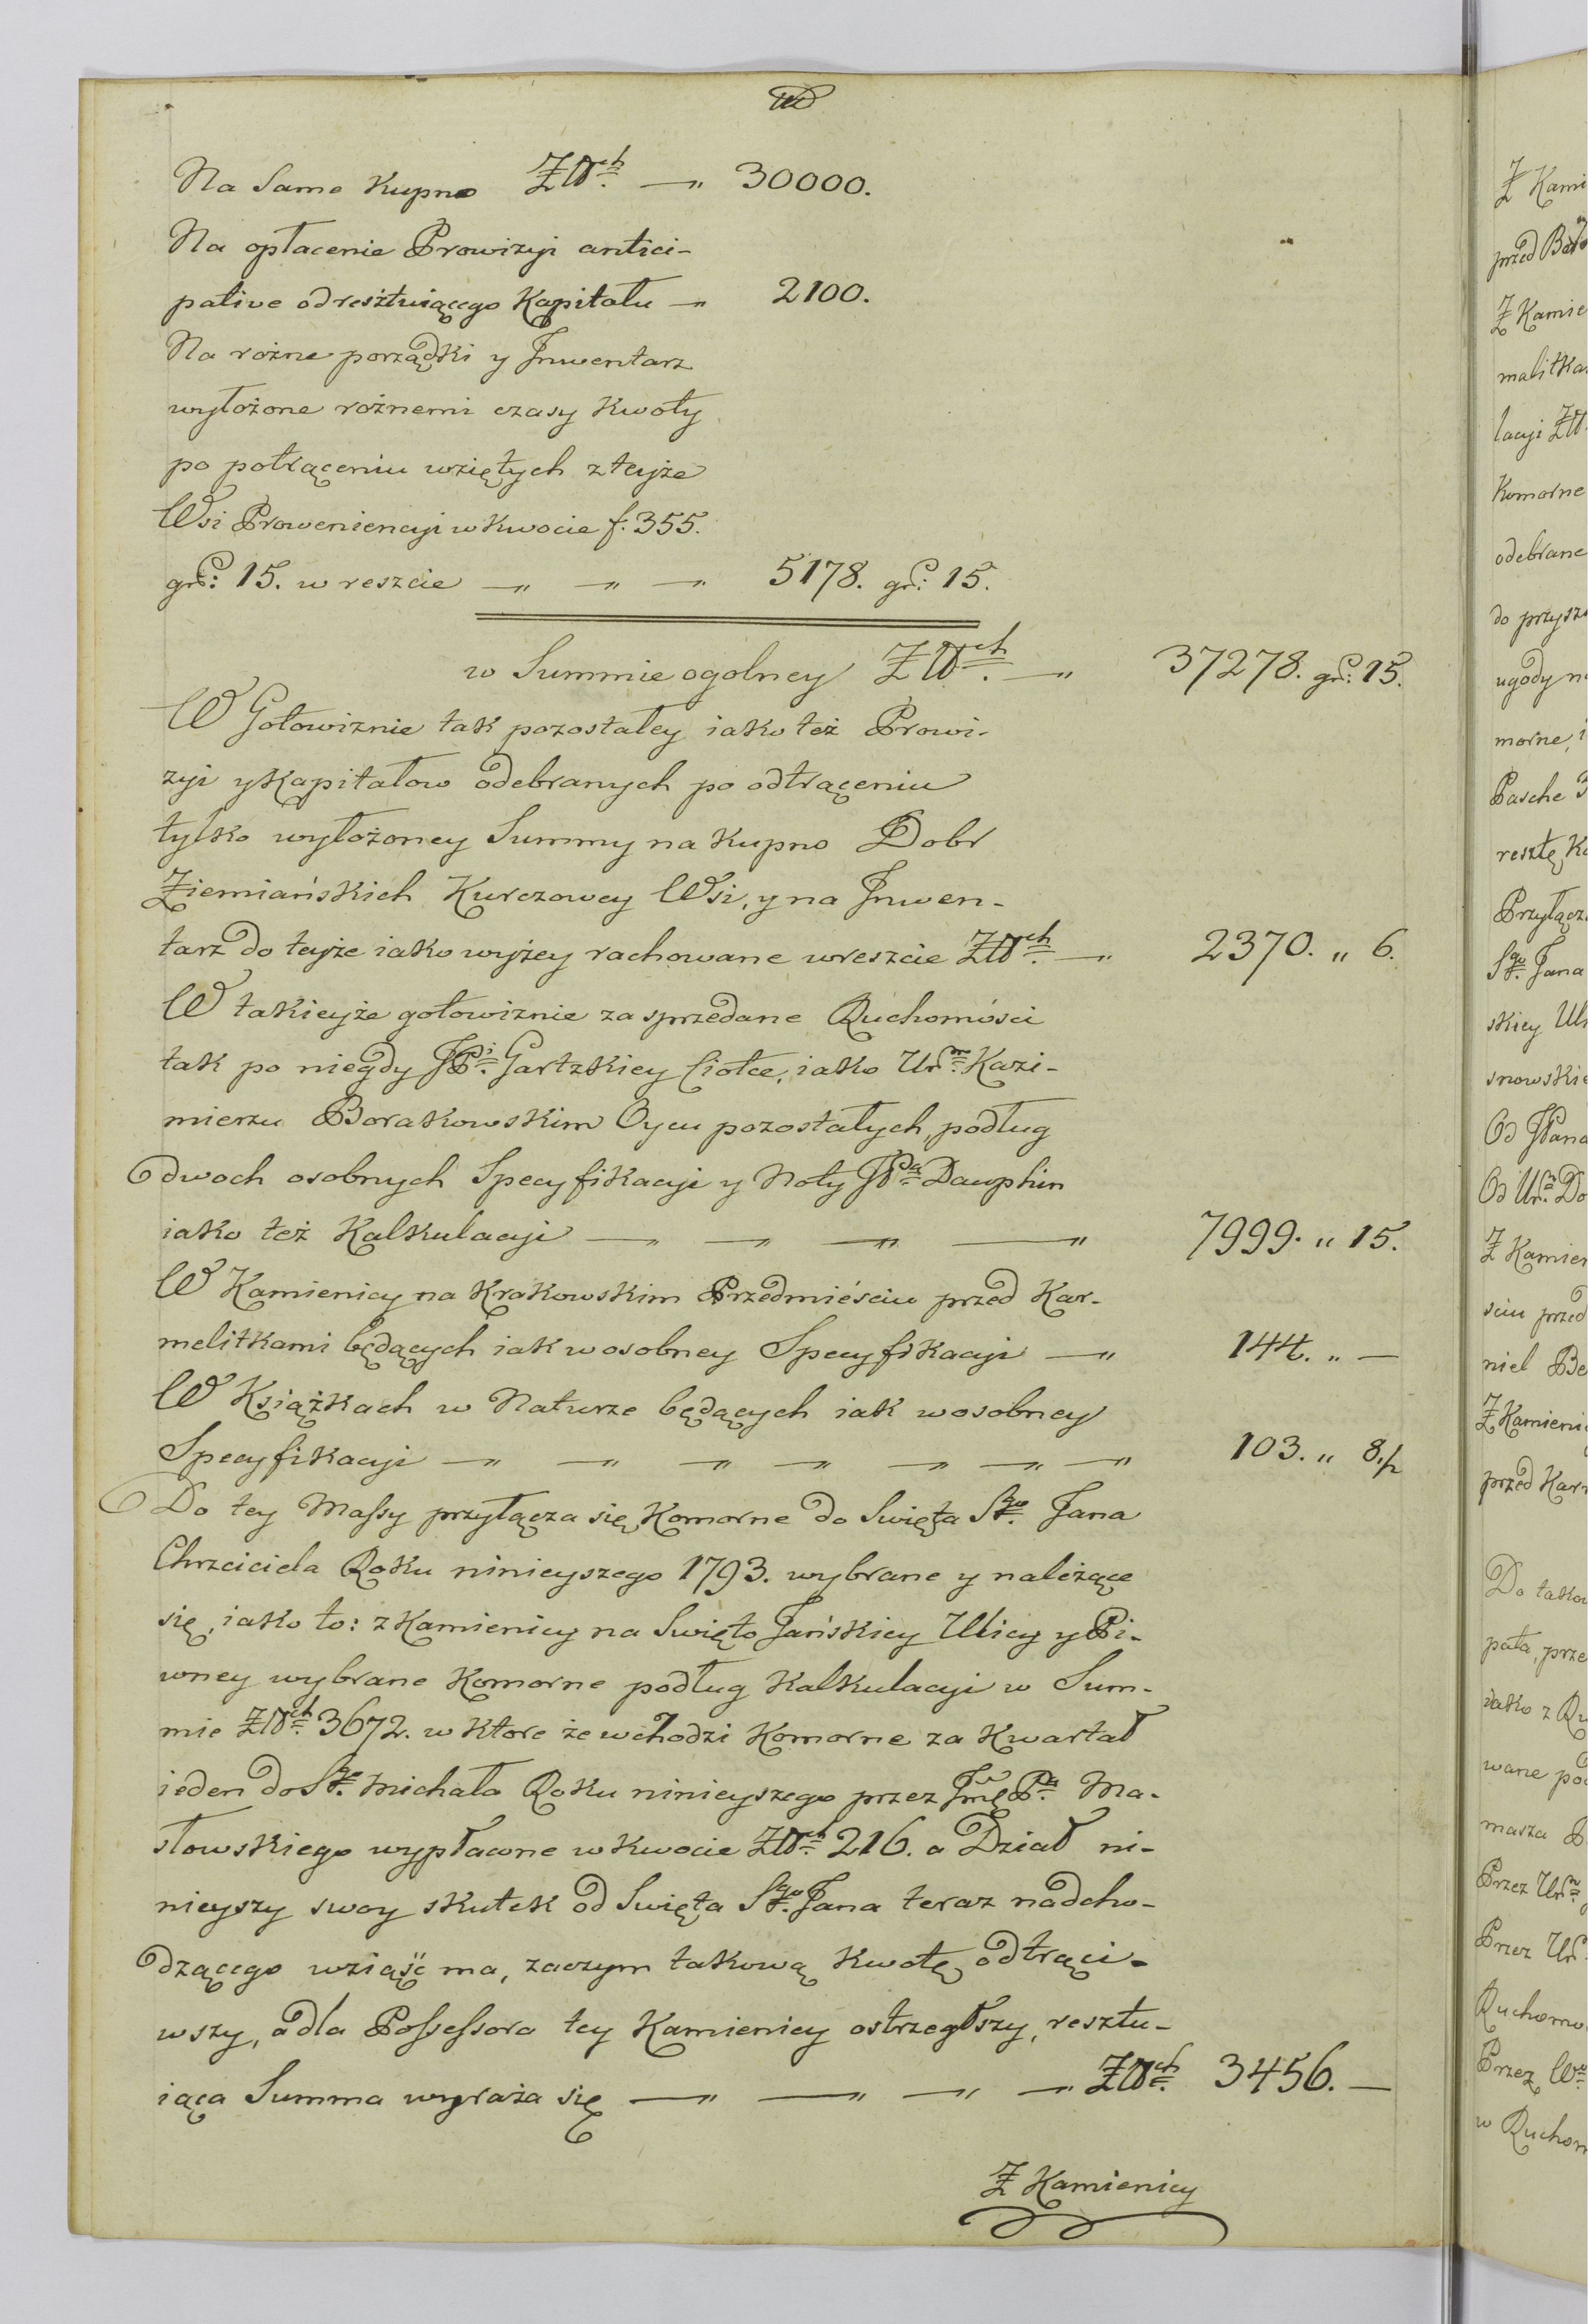 Na Samo Kupno Złłch — 30000.
Na opłacenie Prowizyi antici-
pative od resztuiącego Kapitału — 2100.
Na rożne porządki y Inwentarz
wyłożone rożnemi czasy Kwoty
po potrąceniu wziętych z teyże
Wsi Proweniencyi w Kwocie f. 355.
gr: 15. w reszcie — — — 5178. gr: 15.
w Summie ogolney Złłch. — 37278. gr: 15.
W Gotowiznie tak pozostałey iako też Prowi-
zyi y Kapitałow odebranych po odtrąceniu
tylko wyłożoney Summy na Kupno Dobr
Ziemiańskich Kurczowey Wsi, y na Inwen-
tarz do teyże iako wyżey rachowane w reszcie Złłch. — 2370. „ 6.
W takieyże gotowiznie za sprzedane Ruchomości
tak po niegdy JPi. Gartzkiey Ciotce, iako Urm. Kazi-
mierzu Borakowskim Oycu pozostałych podług
dwoch osobnych Specyfikacyi y Noty JPa. Dauphin
iako też Kalkulacyi — — — — 7999. „ 15.
W Kamienicy na Krakowskim Przedmieściu przed Kar-
melitkami będących iak w osobney Specyfikacyi — 144. „ —
W Książkach w Naturze będących iak w osobney
Specyfikacyi — — — — — — — 103. „ 8½
Do tey Massy przyłącza się Komorne do Swięta Sgo. Jana
Chrzciciela Roku ninieyszego 1793. wybrane y należące
się, iako to: z Kamienicy na Swięto Jańskiey Ulicy y Pi-
wney wybrane Komorne podług Kalkulacyi w Sum-
mie Złłch. 3672. w Ktore że wchodzi Komorne za Kwartał
ieden do Sgo. Michała Roku ninieyszego przez Jmę Pa. Ma-
słowskiego wypłacone w Kwocie Złłch. 216. a Dział ni-
nieyszy swoy skutek od Swięta Sgo. Jana teraz nadcho-
dzącego wziąść ma, zaczym takową Kwotę odtrąci-
wszy, a dla Possessora tey Kamienicy ostrzegłszy, resztu-
iąca Summa wyraża się — — — — Złłch. 3456. —
Z Kamienicy
Z Kami
przed
Z Kamie
malitka
lacyi Złł
Komorne
odebrane
do przysz
ugody n
morne, i
Pasche 3
resztę K
Przyłącz
Sgo. Jana
skiey Ul
snowskie
Od JPana
Od Ur. Do
Z Kamien
sciu przed
niel Be
Z Kamieni
przed Kar
Do takow
pała, prze
iako z Ru
wane po
masza
Przez Ur
Przez Ur
Ruchomo
Przez W
w Ruchom